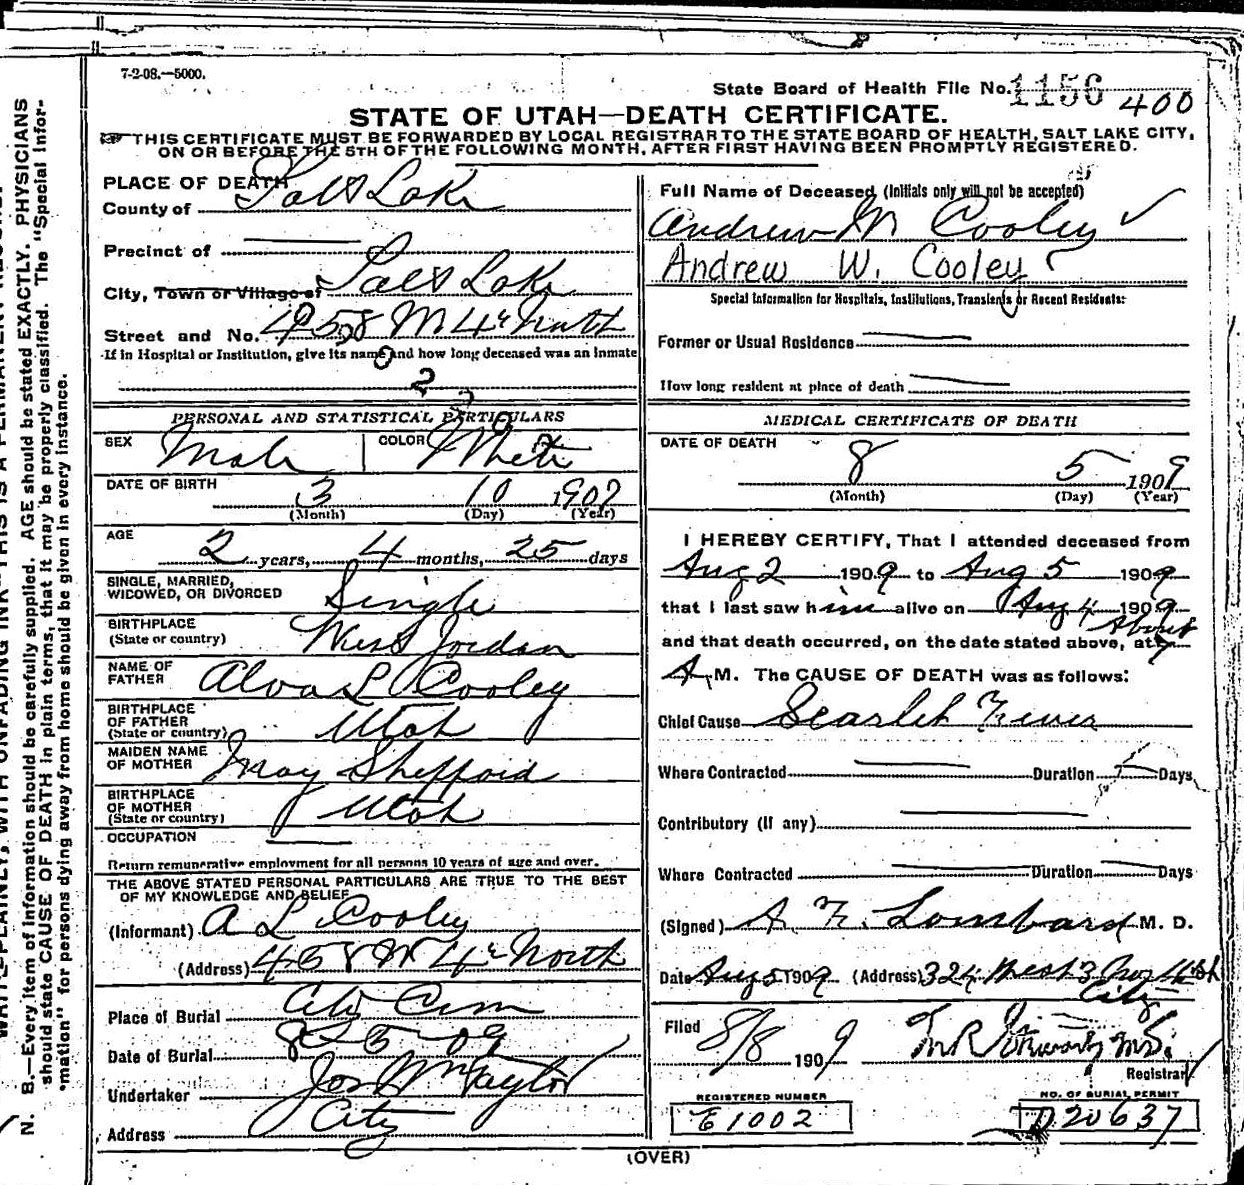 7-2-08.—5000.
State Board of Health File No. 1156 400
STATE OF UTAH—DEATH CERTIFICATE.
THIS CERTIFICATE MUST BE FORWARDED BY LOCAL REGISTRAR TO THE STATE BOARD OF HEALTH, SALT LAKE CITY,
ON OR BEFORE THE 5TH OF THE FOLLOWING MONTH, AFTER FIRST HAVING BEEN PROMPTLY REGISTERED.
PLACE OF DEATH
County of Salt Lake
Precinct of
City, Town or Village of Salt Lake
Street and No. 458 W 4th North
If in Hospital or Institution, give its name and how long deceased was an inmate
2
PERSONAL AND STATISTICAL PARTICULARS
SEX Male COLOR White
DATE OF BIRTH 3 10 1907
(Month) (Day) (Year)
AGE 2 years, 4 months, 25 days
SINGLE, MARRIED,
WIDOWED, OR DIVORCED Single
BIRTHPLACE
(State or country) West Jordan
NAME OF
FATHER Alva L Cooley
BIRTHPLACE
OF FATHER
(State or country) Utah
MAIDEN NAME
OF MOTHER May Sheffoid
BIRTHPLACE
OF MOTHER
(State or country) Utah
OCCUPATION
Return remunerative employment for all persons 10 years of age and over.
THE ABOVE STATED PERSONAL PARTICULARS ARE TRUE TO THE BEST
OF MY KNOWLEDGE AND BELIEF
(Informant) A L Cooley
(Address) 458 W 4th North
Place of Burial City Cem
Date of Burial 8-5-09
Undertaker Jos Wm Taylor
Address City
Full Name of Deceased (Initials only will not be accepted)
Andrew W Cooley
Andrew W. Cooley
Special Information for Hospitals, Institutions, Transients or Recent Residents:
Former or Usual Residence
How long resident at place of death
MEDICAL CERTIFICATE OF DEATH
DATE OF DEATH 8 5 1909
(Month) (Day) (Year)
I HEREBY CERTIFY, That I attended deceased from
Aug 2 1909 to Aug 5 1909
that I last saw him alive on Aug 4 1909
and that death occurred, on the date stated above, at About
A. M. The CAUSE OF DEATH was as follows:
Chief Cause Scarlet Fever
Where Contracted Duration Days
Contributory (if any)
Where Contracted Duration Days
(Signed) A. F. Lombard M. D.
Date Aug 5 1909 (Address) 324 West 3
City
Filed 8/8 1909 M.D.
Registrar
REGISTERED NUMBER
E1002
NO. OF BURIAL PERMIT
D20637
(OVER)
N. B.—Every item of information should be carefully supplied. AGE should be stated EXACTLY. PHYSICIANS
should state CAUSE OF DEATH in plain terms, that it may be properly classified. The "Special Infor-
mation" for persons dying away from home should be given in every instance.